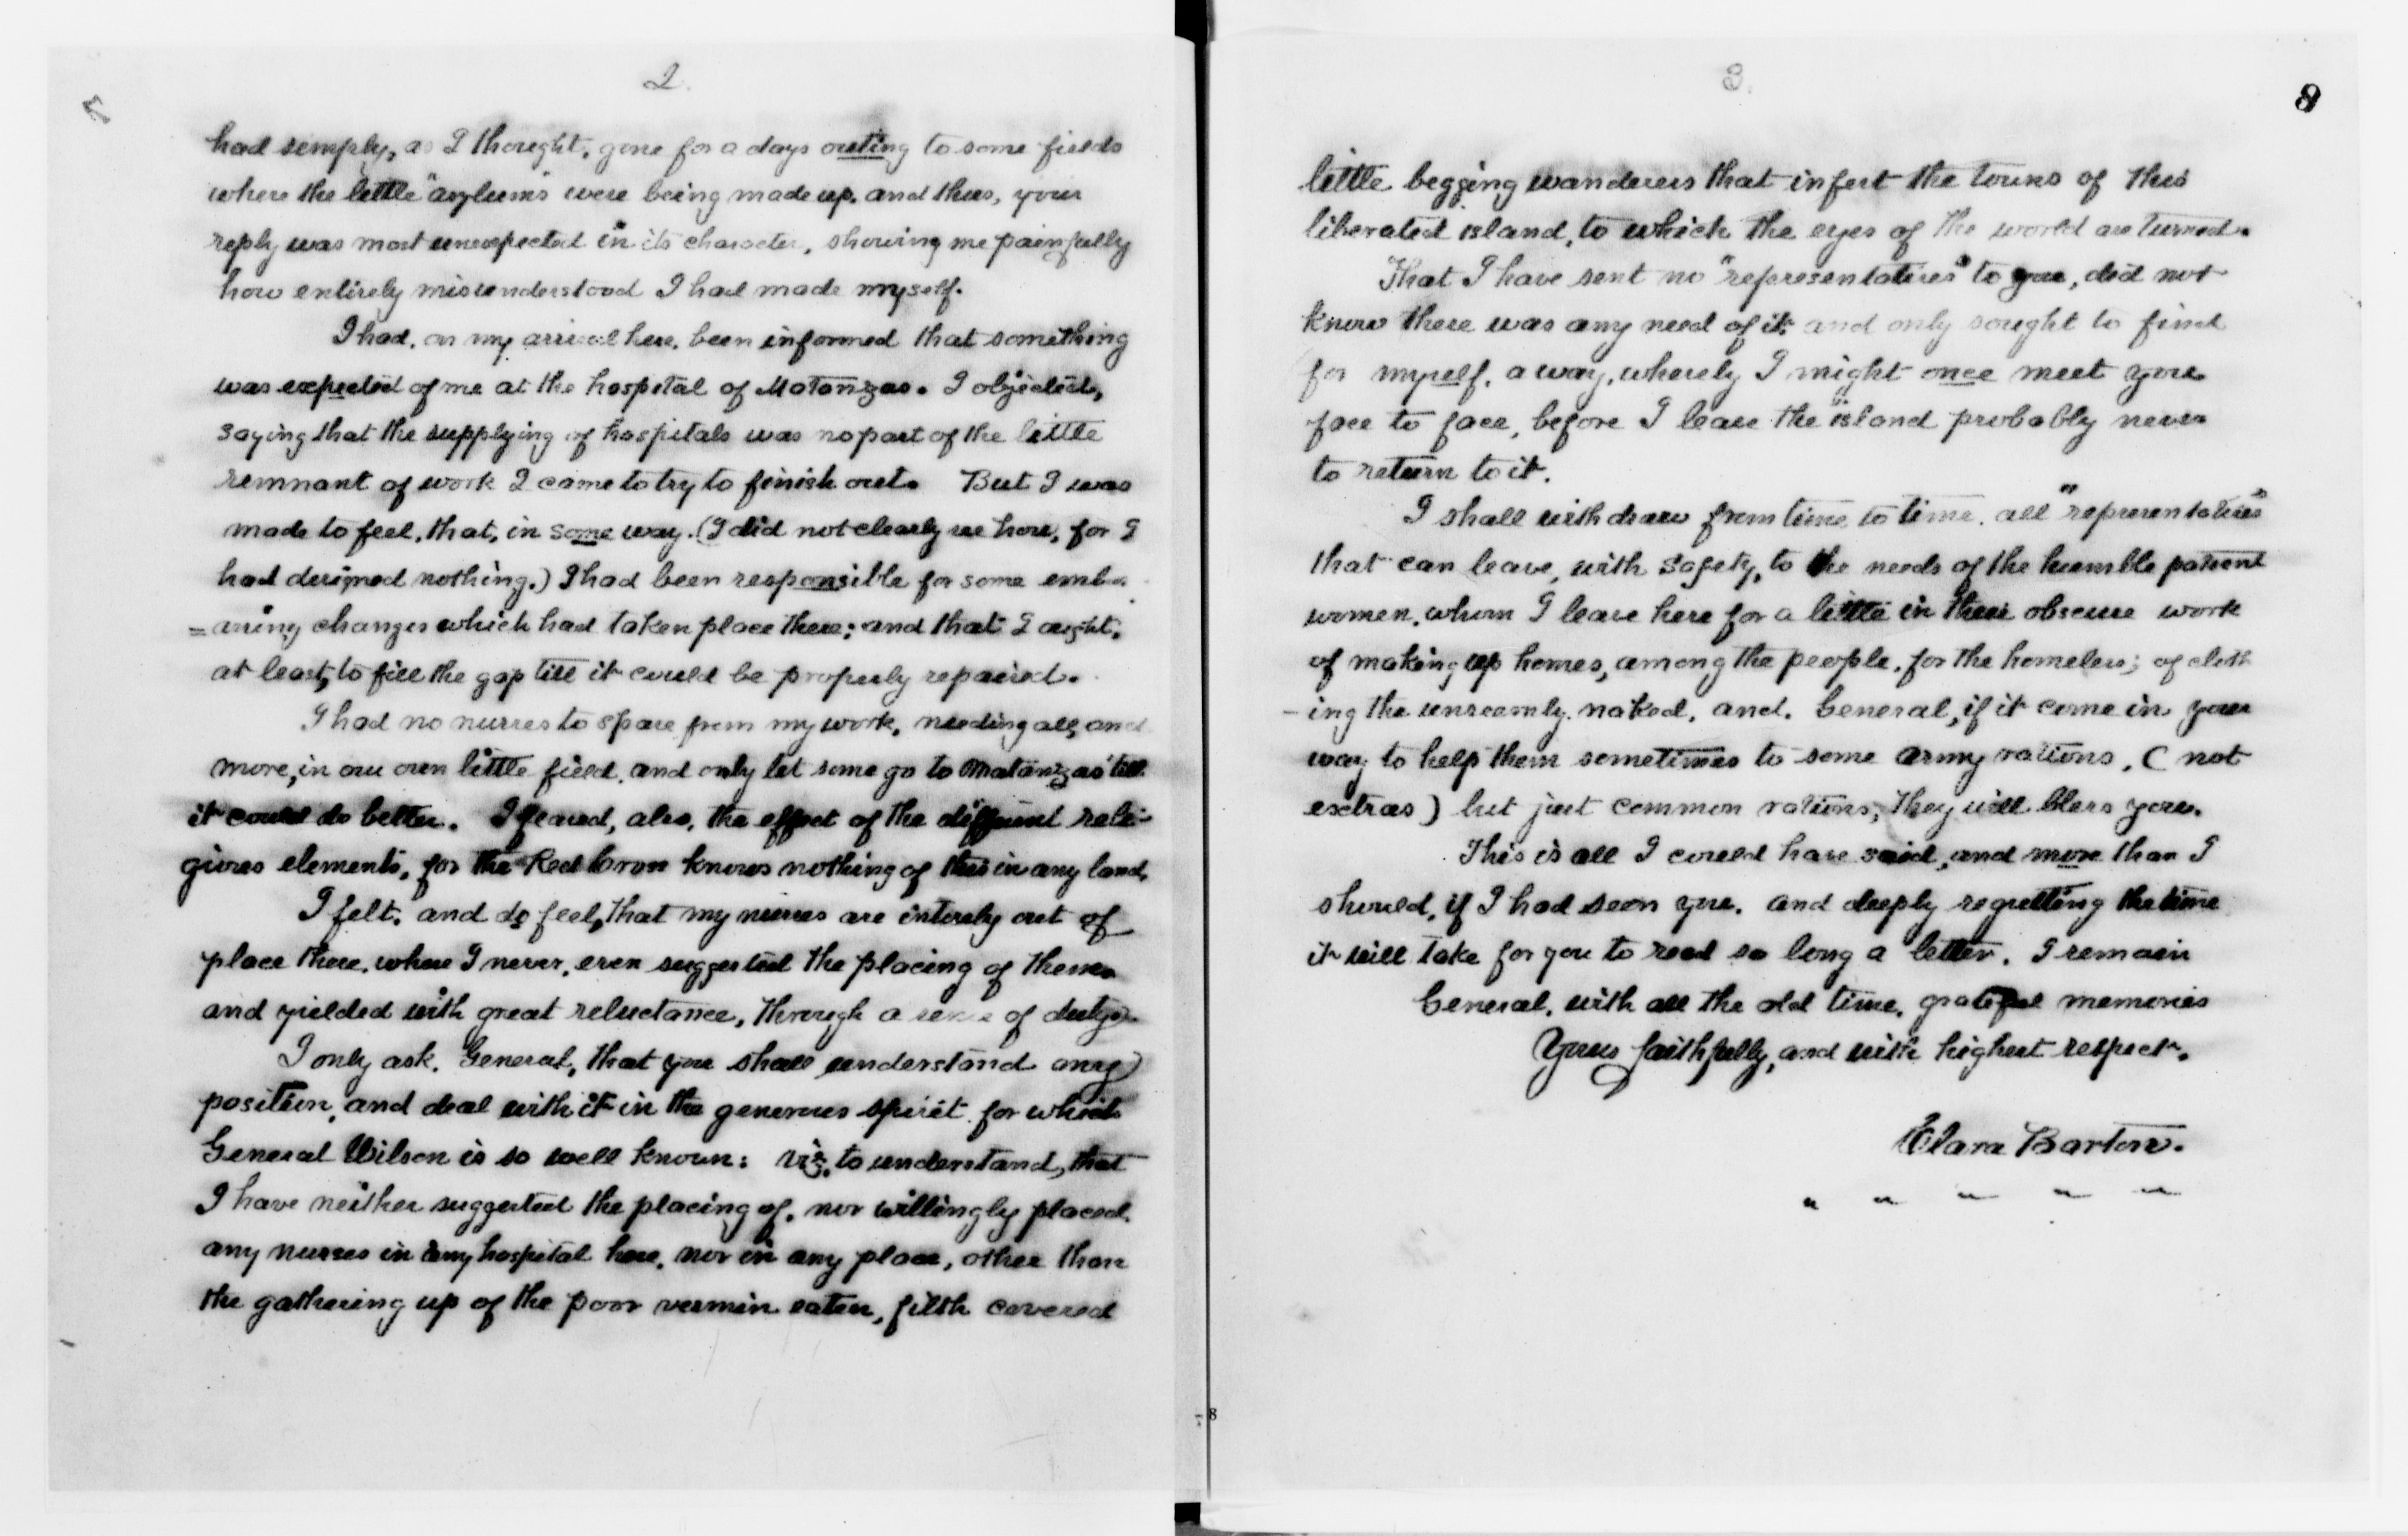 2.
7
had simply, as I thought, gone for a days outing to some fields
where the little "asylums" were being made up, and thus, your
reply was most unexpected in its character, showing me painfully
how entirely misunderstood I had made myself.
I had, on my arrival here, been informed that something
was expected of me at the hospital of Matanzas. I objected,
saying that the supplying of hospitals was no part of the little
remnant of work I came to try to finish out. But I was
made to feel, that, in some way. (I did not clearly see how, for I
had designed nothing.) I had been responsible for some emba
=rrasing changes which had taken place there; and that I aught,
at least, to fill the gap till it could be properly repaired.
I had no nurses to spare from my work, needing all, and
more, in our own little field, and only let some go to Matanzas 'till
it could do better. I feared, also, the effect of the different reli-
gious elements, for the Red Cross knows nothing of this in any land.
I felt, and do feel, that my nurses are intirely out of
place there, where I never, even suggested the placing of them
and yielded with great reluctance, through a sense of duty.
I only ask, General, that you shall understand my
position, and deal with it in the generous spirit for which
General Wilson is so well known: viz, to understand, that
I have neither suggested the placing of, nor willingly placed,
any nurses in any hospital here, nor in any place, other than
the gathering up of the poor vermin eaten, filth covered
3.
8
little begging wanderers that infest the towns of this
liberated island, to which the eyes of the world are turned.
That I have sent no "representatives" to you, did not
know there was any need of it; and only sought to find
for myself, a way, whereby I might once meet you
face to face, before I leave the island probably never
to return to it.
I shall withdraw from time to time, all "representatives"
that can leave, with safety, to the needs of the humble patient
women, whom I leave here for a little in their obscure work
of making up homes, among the people, for the homeless; of cloth
-ing the unseemly naked, and, General, if it come in your
way to help them sometimes to some army rations, (not
extras) but just common rations, they will bless you.
This is all I could have said, and more than I
should, if I had seen you, and deeply regretting the time
it will take for you to read so long a letter, I remain
General, with all the old time, grateful memories
Yours faithfully, and with highest respect.
Clara Barton.
8